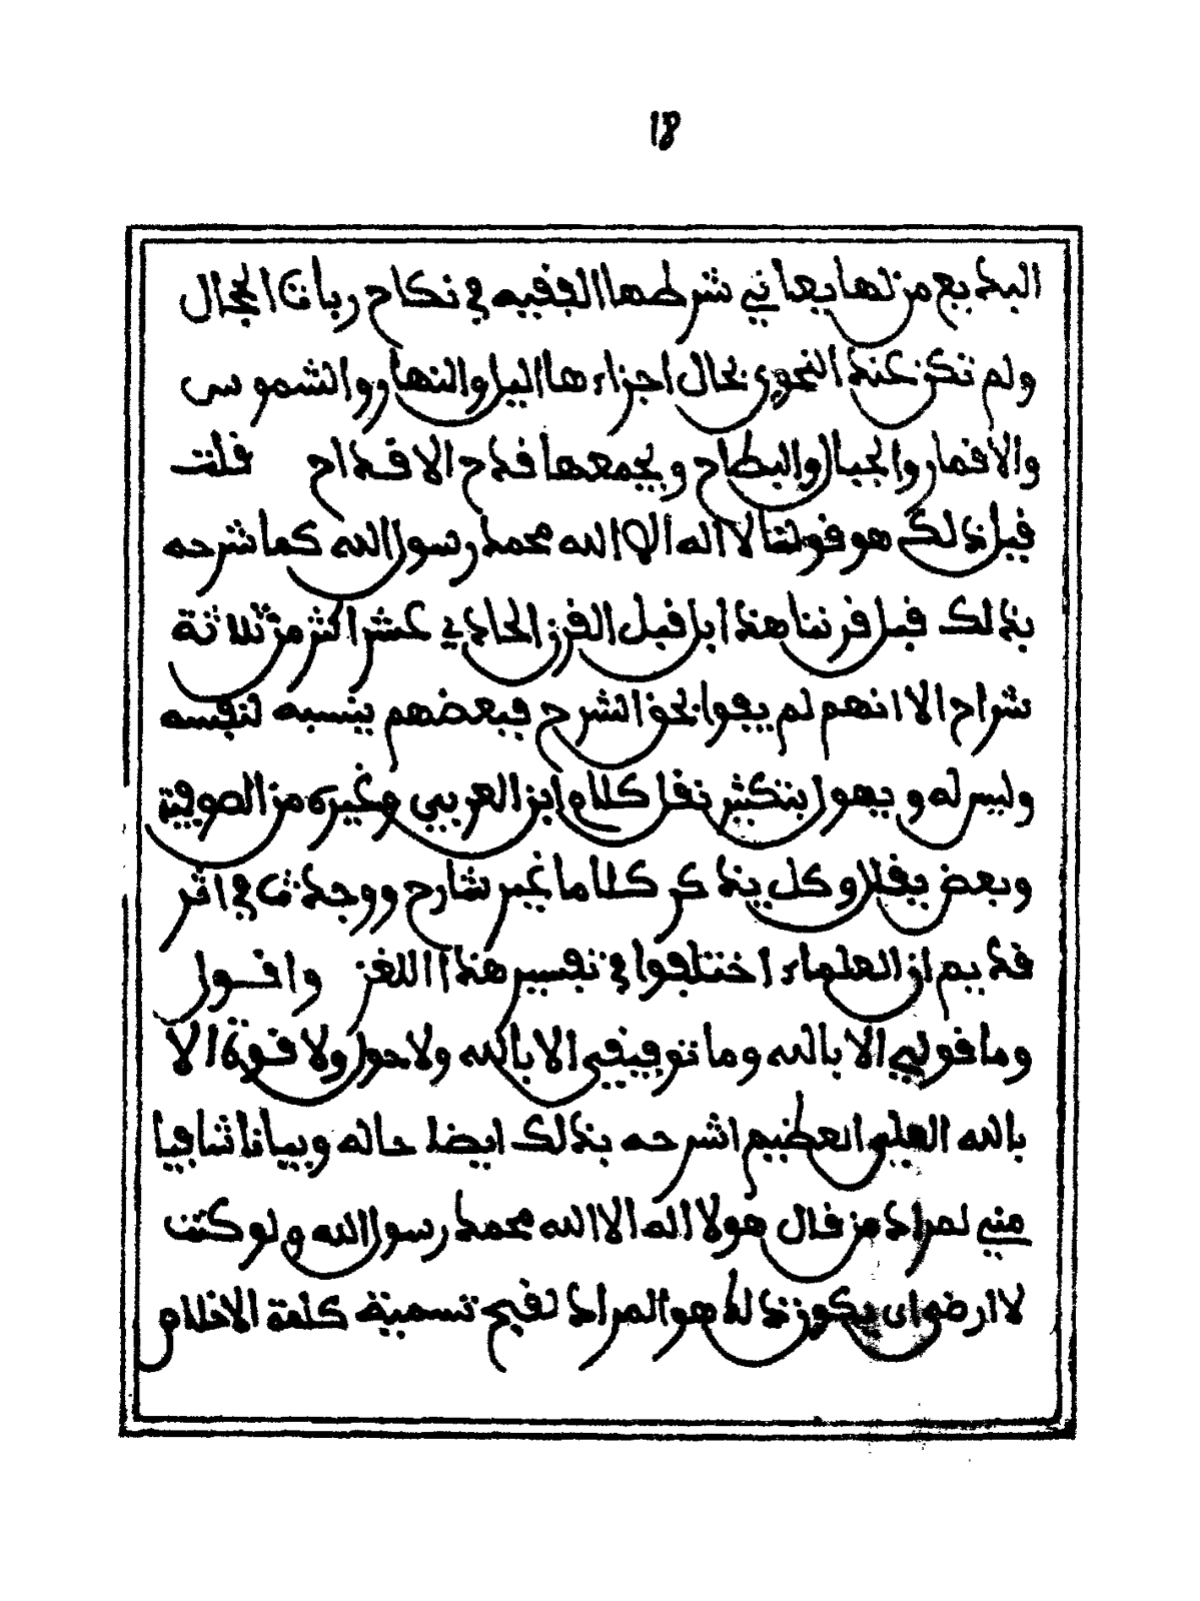 18
البديع من لها يعاني شرطها الفقيه في نكاح ربات الحجال
ولم تكن عند النحوي بحال اجزاءها اليل والنهار والشموس
والاقمار والجبال والبطاح ويجمعها قدح الاقداح قلت
قبل ذلك هو قولنا لا اله الا الله محمد رسول الله كما شرحه
بذلك قبل قرننا هذا بل قبل القرن الحادي عشر اكثر من ثلاثة
شراح الا انهم لم يفوا بحق الشرح فبعضهم ينسبه لنفسه
وليس له و يهول بتكثير نقل كلام ابن العربي وغيره من الصوفية
وبعض يقلل وكل يذكر كلاما غير شارح ووجدت في اثر
قديم ان العلماء اختلفوا في تفسير هذا اللغز واقول
وما قولي الا بالله وما توفيقي الا بالله ولا حول ولا قوة الا
بالله العلي العظيم اشرحه بذلك ايضا حاله وبيانا شافيا
مني لمراد من قال هو لا اله الا الله محمد رسول الله ولو كنت
لا ارضى ان يكون ذلك هو المراد لقبح تسمية كلمة الاخلام